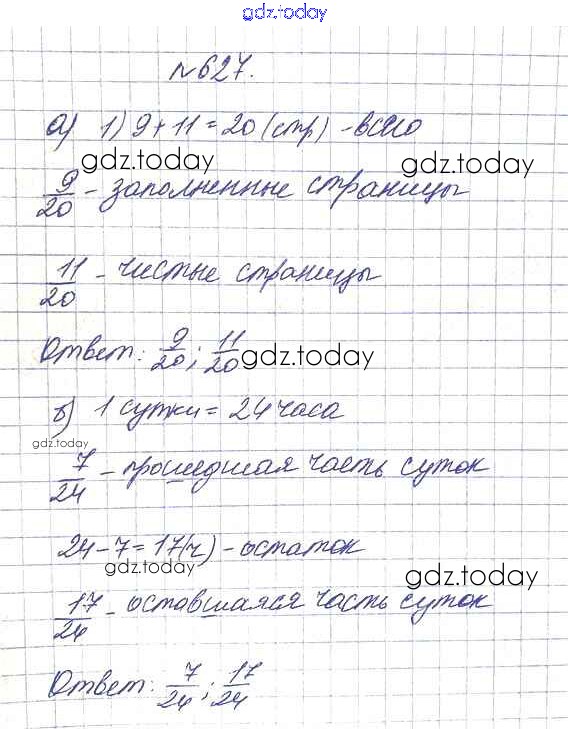 gdz.today
№627.
а) 1) 9+11=20 (стр) - всего
gdz.today gdz.today
9/20 - заполненные страницы
11/20 - чистые страницы
Ответ: 9/20; 11/20 gdz.today
б) 1 сутки = 24 часа
gdz.today
7/24 - прошедшая часть суток
24-7=17(ч) - остаток
gdz.today gdz.today
17/24 - оставшаяся часть суток
Ответ: 7/24; 17/24